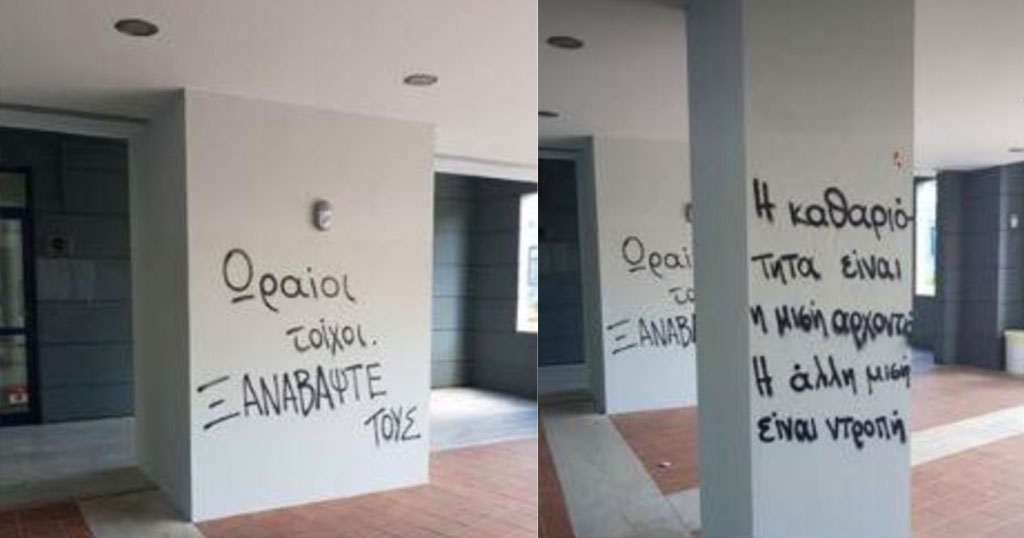 Ωραίοι
τοίχοι.
ΞΑΝΑΒΑΨΤΕ
ΤΟΥΣ
Ωραί
το
ΞΑΝΑΒΑ
Η καθαριό-
τητα είναι
η μισή αρχοντιά
Η άλλη μισή
είναι ντροπή